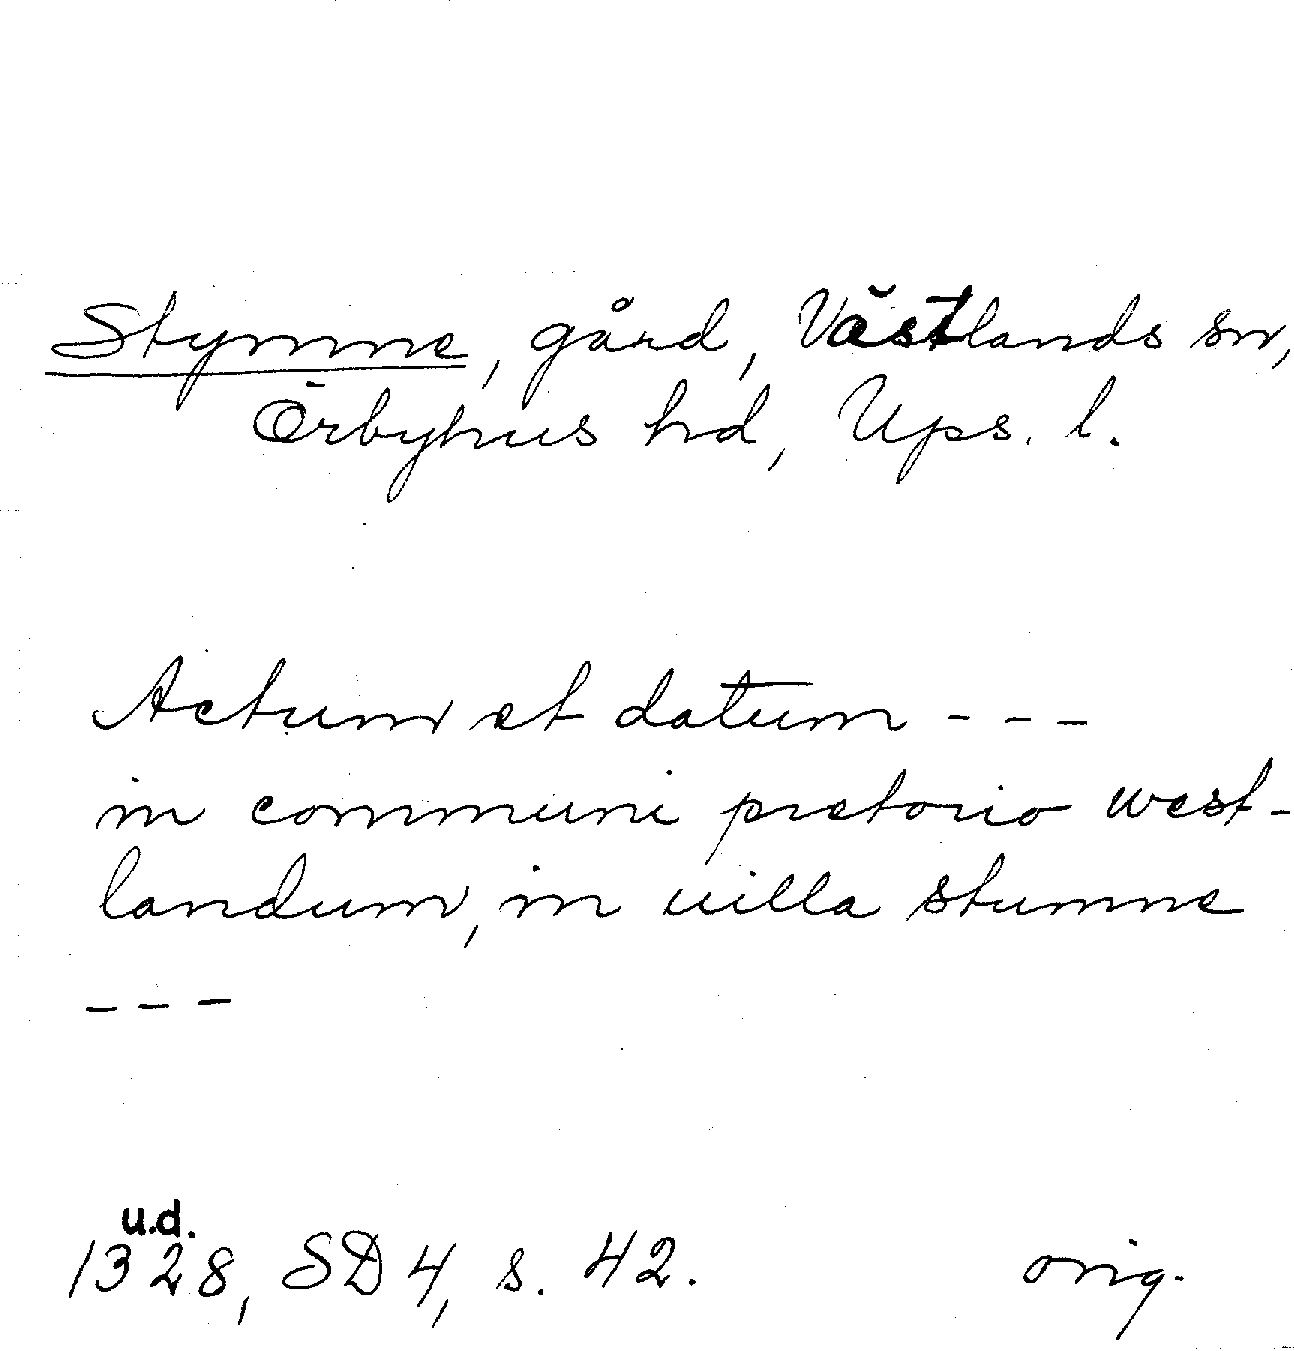 Stymne, gård, Västlands sn,
Örbyhus hd, Ups. l.
Actum et datum - - -
in communi pretorio west-
landum, in uilla stumne
- - -
u.d.
1328, SD 4, s. 42. orig.